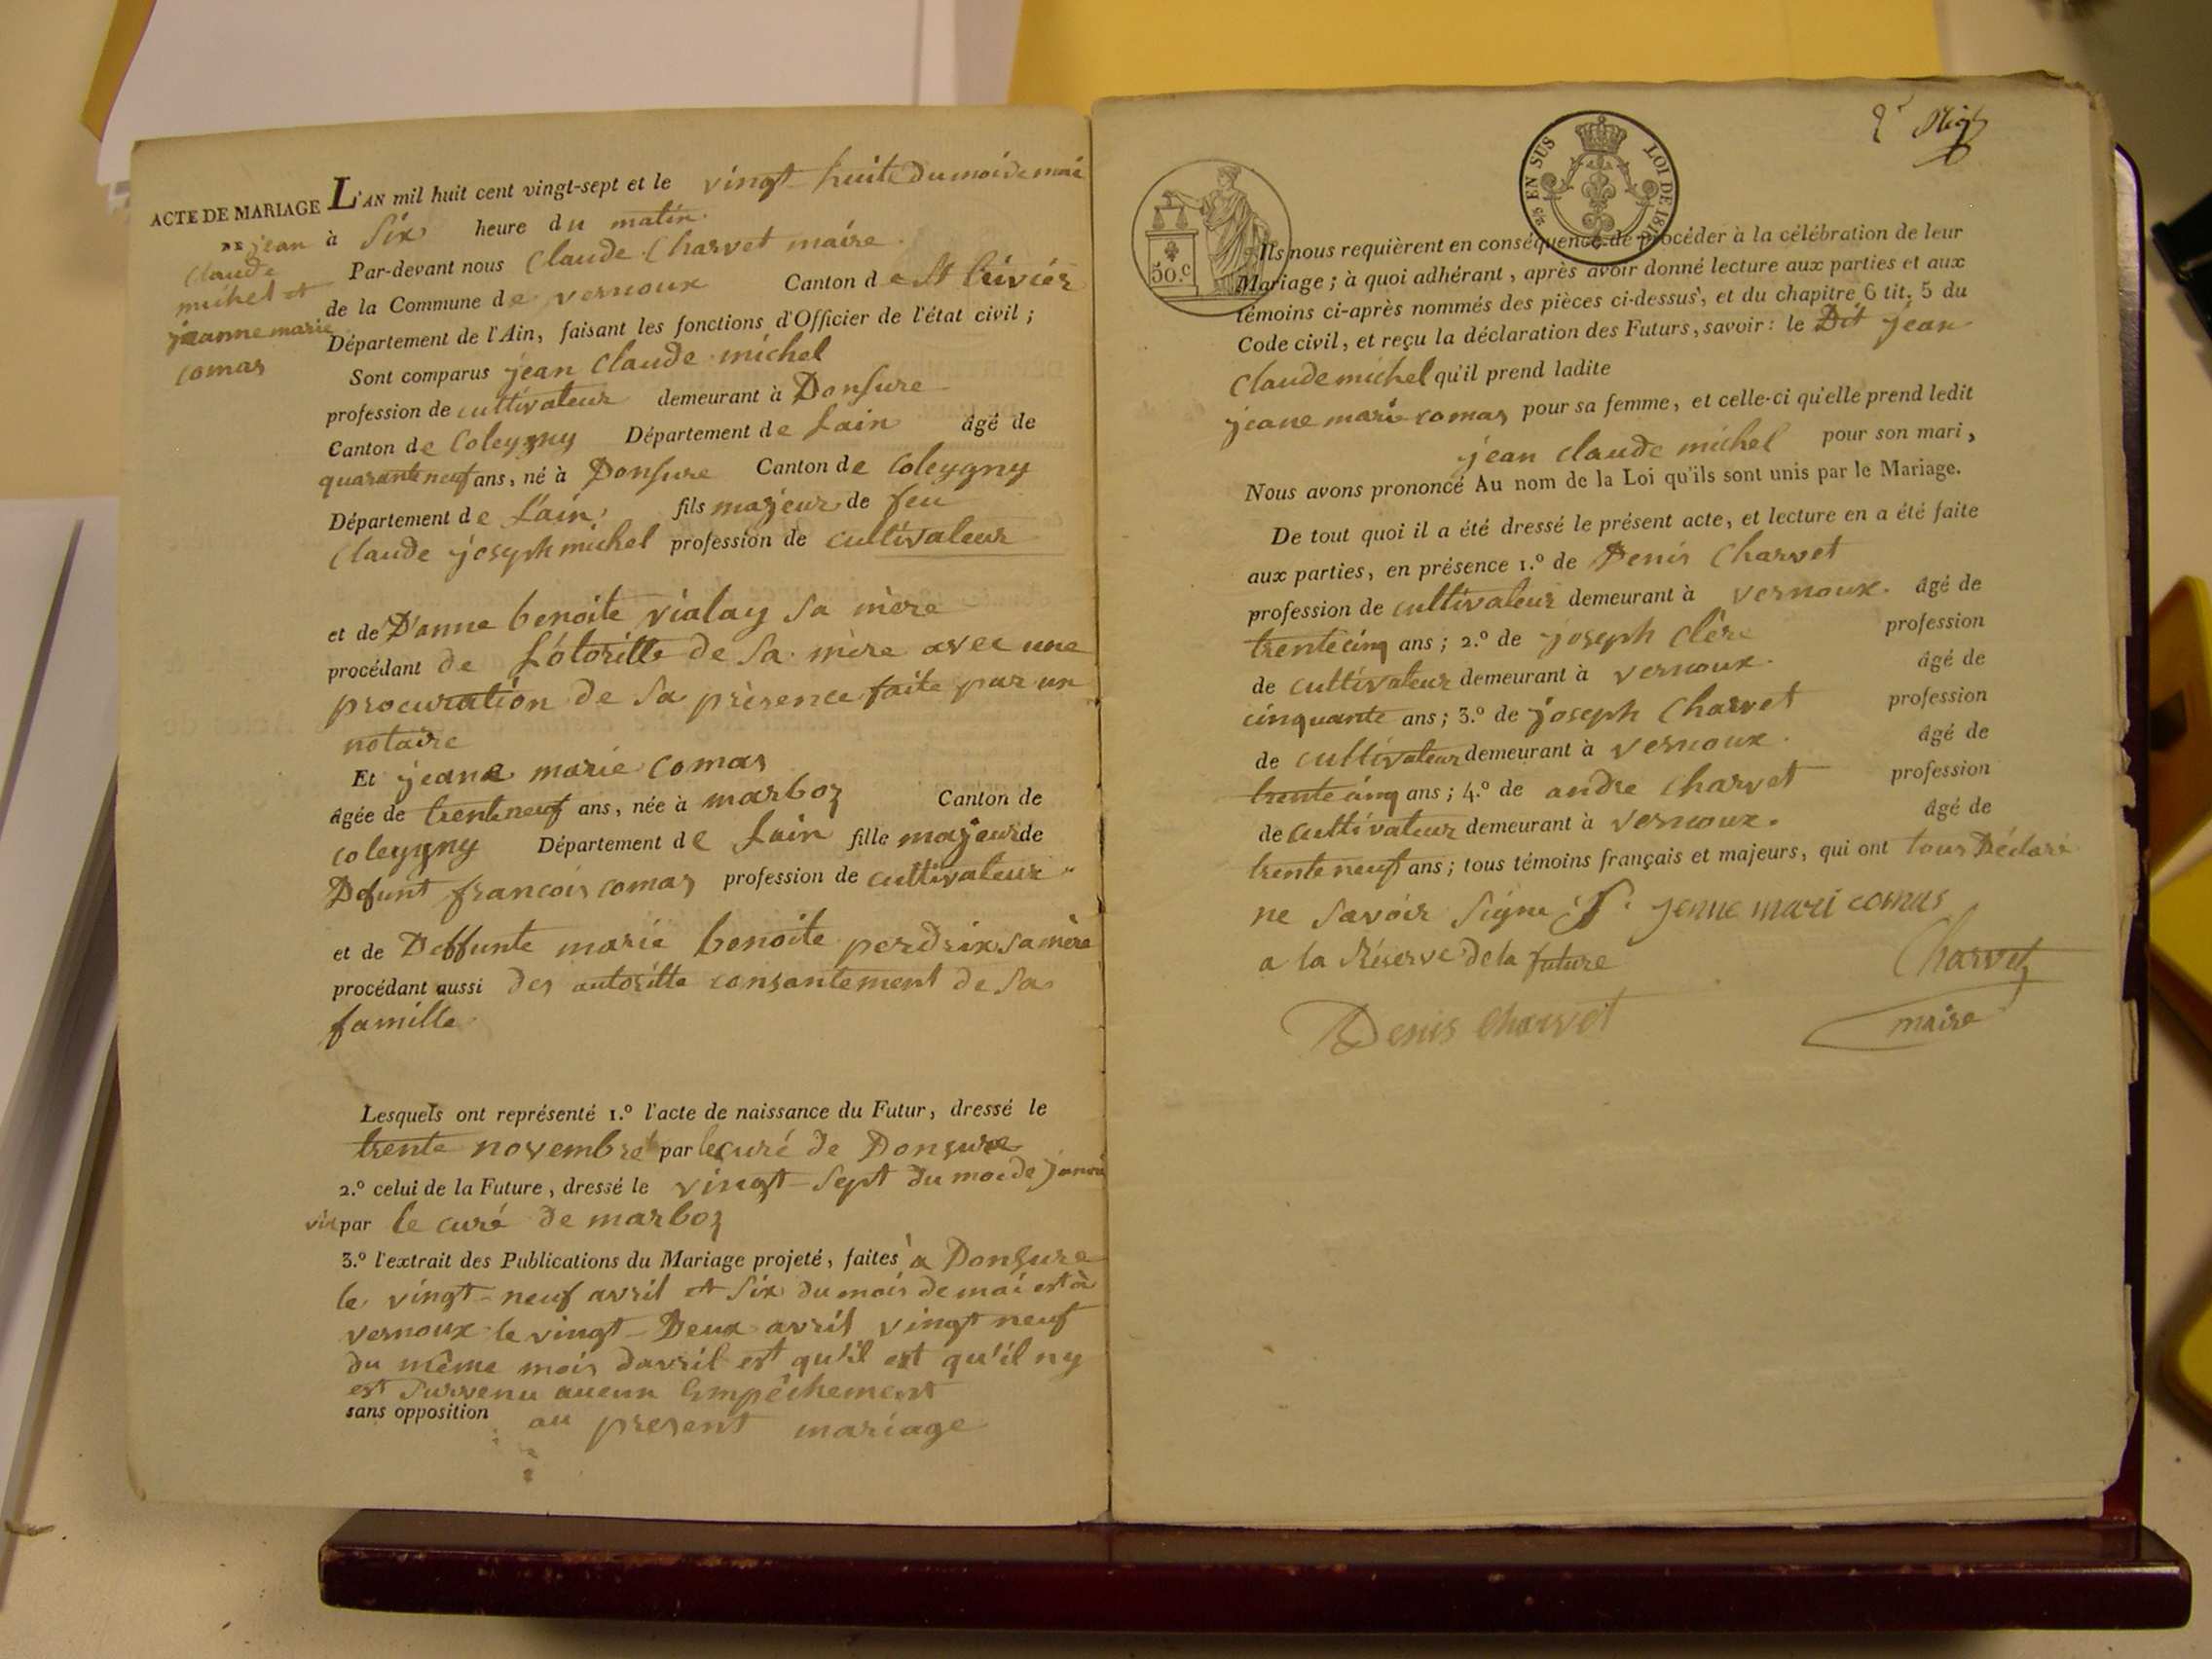 ACTE DE MARIAGE
DE jean
claude
michel et
jeanne marie
comas
L'AN mil huit cent vingt-sept et le vingt-huite du moi de mai
à six heure du matin.
Par-devant nous Claude Charvet maire.
de la Commune de vernoux Canton de St trivier
Département de l'Ain, faisant les fonctions d'Officier de l'état civil;
Sont comparus jean claude michel
profession de cultivateur demeurant à Donsure
Canton de Coleygny Département de Lain âgé de
quarante neuf ans, né à Donsure Canton de Coleygny
Département de Lain, fils majeur de feu
Claude joseph michel profession de cultivateur
et de D'anne benoite vialay sa mère
procédant de Lótoritte de sa mère avec une
procuration de sa prèsence faite par un
notaire
Et jeane marie comas
âgée de trente neuf ans, née à marboz Canton de
coleygny Département de Lain fille majeur de
Defunt francois comas profession de cultivateur
et de Deffunte marie benoite perdrix sa mère
procédant aussi des autoritte consantement de sa
famille.
Lesquels ont représenté 1.º l'acte de naissance du Futur, dressé le
trente novembre par le curé de Donsure
2.º celui de la Future, dressé le vingt-sept du moi de janvi
vie par le curé de marboz
3.º l'extrait des Publications du Mariage projeté, faites à Donsure
le vingt-neuf avril et six du mois de mai est à
vernoux le vingt-Deux avril vingt neuf
du même mois davril est qu'il est qu'il ny
est survenu aucun Empêchement
sans opposition au present mariage
50.C
25 EN SUS LOI DE 1816
Ils nous requièrent en conséquence de procéder à la célébration de leur
Mariage; à quoi adhérant, après avoir donné lecture aux parties et aux
témoins ci-après nommés des pièces ci-dessus, et du chapitre 6 tit. 5 du
Code civil, et reçu la déclaration des Futurs, savoir: le Dit jean
Claude michel qu'il prend ladite
jeane marie comas pour sa femme, et celle-ci qu'elle prend ledit
jean claude michel pour son mari,
Nous avons prononcé Au nom de la Loi qu'ils sont unis par le Mariage.
De tout quoi il a été dressé le présent acte, et lecture en a été faite
aux parties, en présence 1.º de Denis Charvet
profession de cultivateur demeurant à vernoux. âgé de
trente cinq ans; 2.º de joseph clère profession
de cultivateur demeurant à vernoux. âgé de
cinquante ans; 3.º de joseph Charvet profession
de cultivateur demeurant à vernoux. âgé de
trente cinq ans; 4.º de andre Charvet profession
de cultivateur demeurant à vernoux. âgé de
trente neuf ans; tous témoins français et majeurs, qui ont tous Déclaré
ne savoir signe jenne mari comas
a la Réserve de la future
Charvet
Denis Charvet
maire